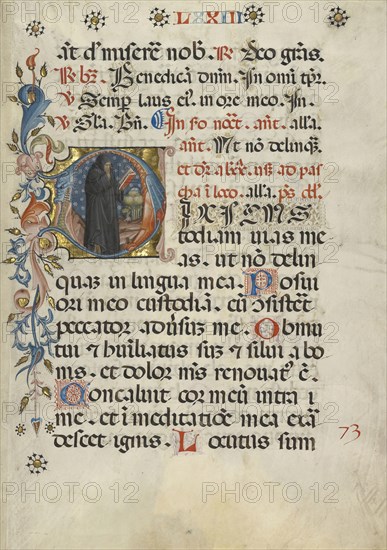 LXXIII
aut d' miserere nob. R Deo gras.
R br. Benedicā dnm. In omni tpr.
V Semper laus ei'. in ore meo. In.
V Gla. Bn. In so noct. ant. alla.
ant. Ut non delinq.
alla. ps. d.
DIXI CUS
todiam uias me
as. ut nō delin
quaz in lingua mea. Posui
ori meo custodiā. cū ōsisteret
peccator aduersuz me. Obmu
tui et humiliatus suz et silui a bo
nis. et dolor m's renouat' ē.
Concaluit cor meū intra i
me. et ī meditatiōe mea exar
descet ignis. Locutus sum
73
PHOTO 12